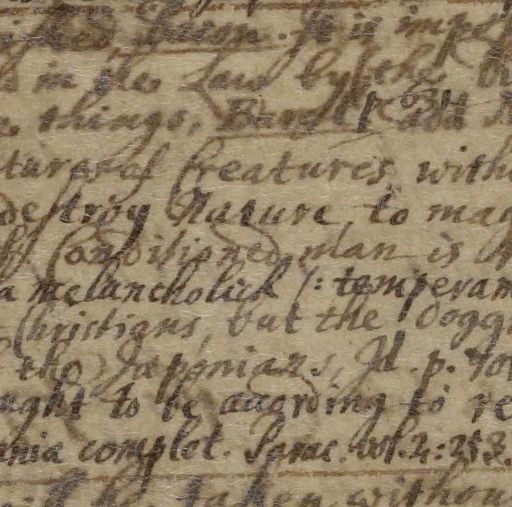 It is imp
in the Law by the
things, Bar
tural Creatures with
destroy Nature to ma
Conditioned man is
a melancholick (: temperam
Christians, but the Dogg
the Japonians, Id. p.
ught to be according to re
ania complet. Sarac. vol. 2: 253.
be taken without